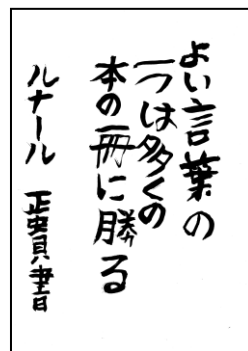 よい言葉の
一つは多くの
本の一冊に勝る
ルナール 正實書